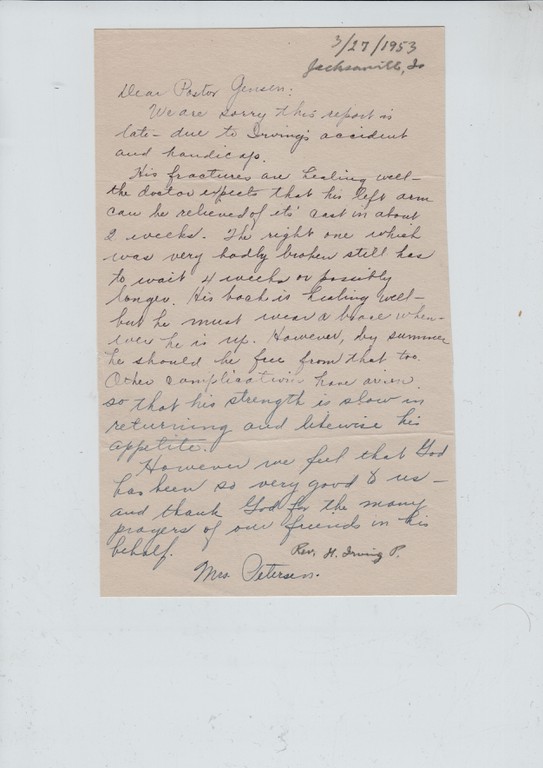 3/27/1953
Jacksonville, Io
Dear Pastor Jensen.
We are sorry this report is
late - due to Irving's accident
and handicap.
His fractures are healing well -
the doctor expects that his left arm
can be relieved of it's cast in about
2 weeks. The right one which
was very badly broken still has
to wait 4 weeks or possibly
longer. His back is healing well -
but he must wear a brace when-
ever he is up. However, by summer
he should be free from that too.
Other complications have arisen
so that his strength is slow in
returning and likewise his
appetite.
However we feel that God
has been so very good to us -
and thank God for the many
prayers of our friends in his
behalf.
Rev. H. Irving P.
Mrs. Petersen.